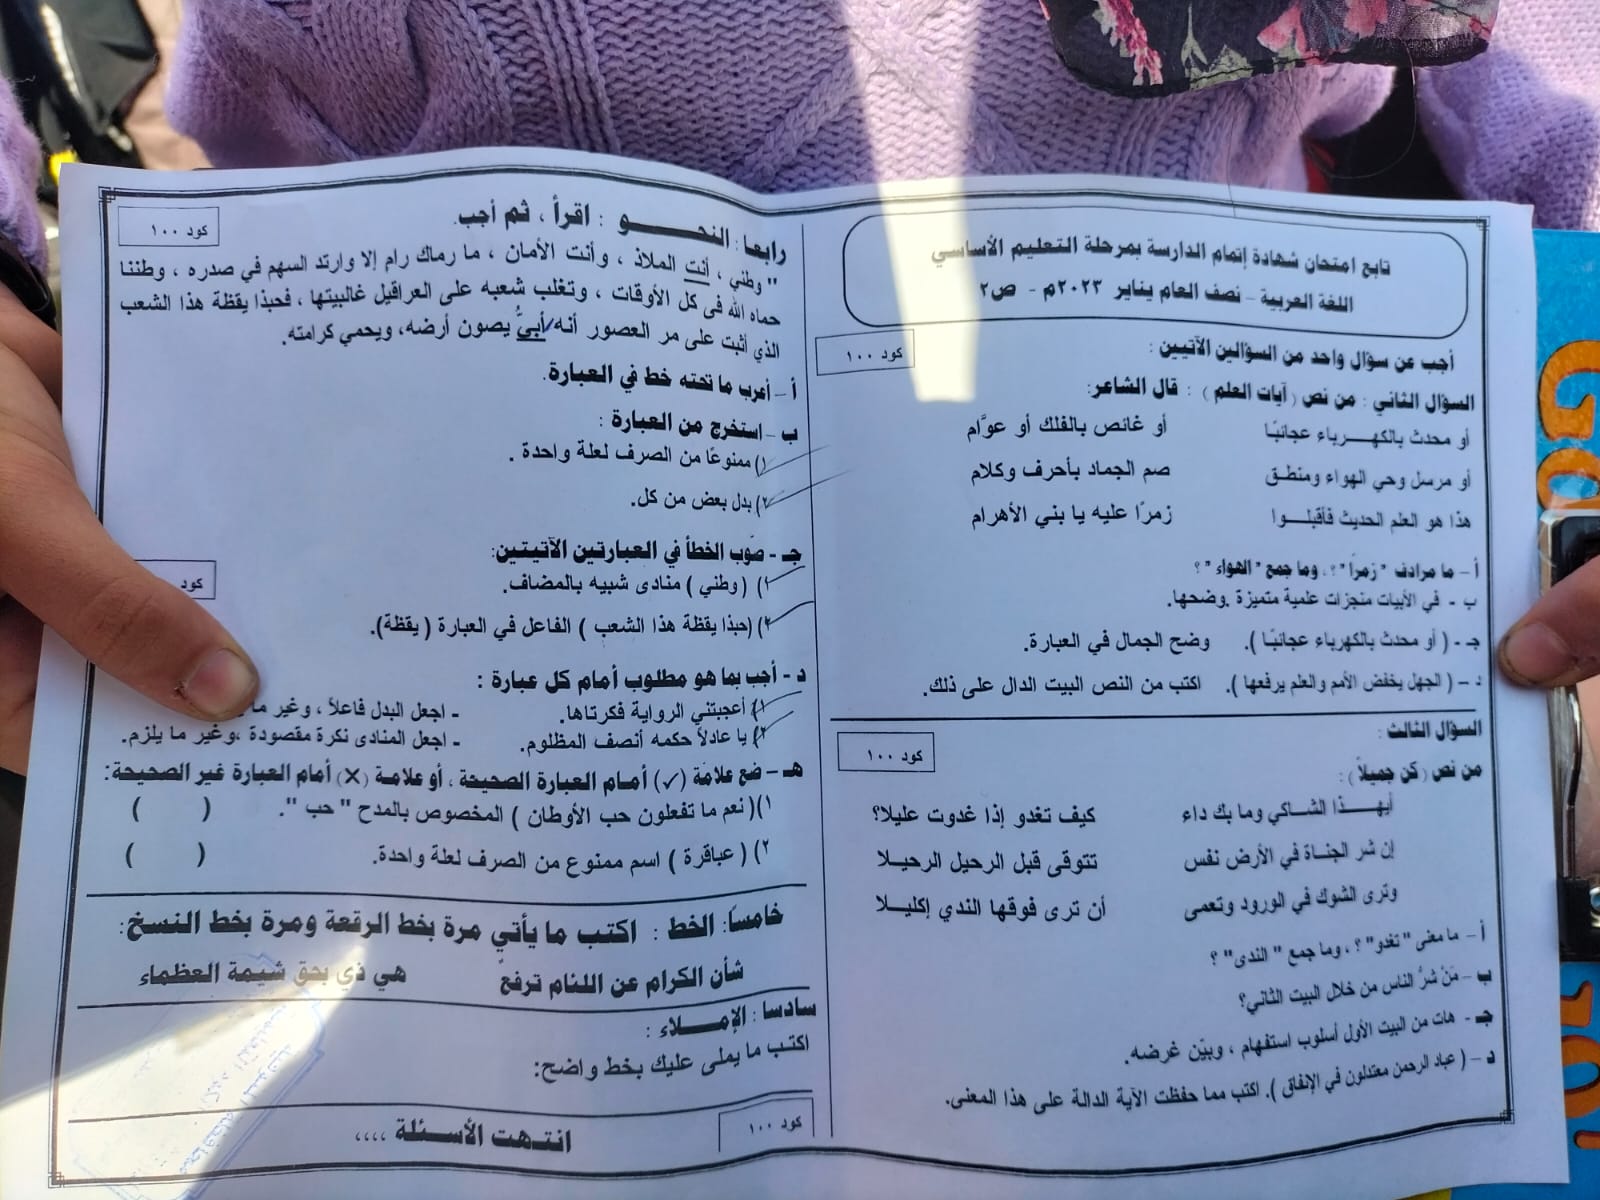 تابع امتحان شهادة إتمام الدارسة بمرحلة التعليم الأساسي
اللغة العربية – نصف العام يناير ٢٠٢٣م - ص٢
كود ١٠٠
أجب عن سؤال واحد من السؤالين الآتيين :
السؤال الثاني : من نص ( آيات العلم ) : قال الشاعر:
أو محدث بالكهـــرباء عجائبًا أو غائص بالفلك أو عوَّام
أو مرسل وحي الهواء ومنطـق صم الجماد بأحرف وكلام
هذا هو العلم الحديث فأقبلــوا زمرًا عليه يا بني الأهرام
أ – ما مرادف " زمراً " ؟ ، وما جمع " الهواء " ؟
ب - في الأبيات منجزات علمية متميزة .وضحها.
جـ - ( أو محدث بالكهرباء عجائبًا ). وضح الجمال في العبارة.
د – ( الجهل يخفض الأمم والعلم يرفعها ). اكتب من النص البيت الدال على ذلك.
السؤال الثالث :
كود ١٠٠
من نص ( كن جميلاً ) :
أيهـــذا الشـاكي وما بك داء كيف تغدو إذا غدوت عليلا؟
إن شر الجنـاة في الأرض نفس تتوقى قبل الرحيل الرحيـلا
وترى الشوك في الورود وتعمى أن ترى فوقها الندي إكليـلا
أ – ما معنى " تغدو" ؟ ، وما جمع " الندى" ؟
ب – مَنْ شرُّ الناس من خلال البيت الثاني؟
جـ - هات من البيت الأول أسلوب استفهام ، وبيّن غرضه.
د – ( عباد الرحمن معتدلون في الإنفاق ). اكتب مما حفظت الآية الدالة على هذا المعنى.
رابعا : النحـــــو : اقرأ ، ثم أجب.
كود ١٠٠
" وطني ، أنت الملاذ ، وأنت الأمان ، ما رماك رام إلا وارتد السهم في صدره ، وطننا
حماه الله فى كل الأوقات ، وتغلب شعبه على العراقيل غالبيتها ، فحبذا يقظة هذا الشعب
الذي أثبت على مر العصور أنه أبيٌّ يصون أرضه، ويحمي كرامته.
أ – أعرب ما تحته خط في العبارة.
ب – استخرج من العبارة :
١) ممنوعًا من الصرف لعلة واحدة .
٢) بدل بعض من كل.
جـ - صّوب الخطأ في العبارتين الآتيتين:
كود
١) ( وطني ) منادى شبيه بالمضاف.
٢) (حبذا يقظة هذا الشعب ) الفاعل في العبارة ( يقظة).
د - أجب بما هو مطلوب أمام كل عبارة :
١) أعجبتني الرواية فكرتاها. - اجعل البدل فاعلاً ، وغير ما
٢) يا عادلاً حكمه أنصف المظلوم. - اجعل المنادى نكرة مقصودة ،وغير ما يلزم.
هـ – ضع علامة (✓) أمام العبارة الصحيحة ، أو علامة (✕) أمام العبارة غير الصحيحة:
١)( نعم ما تفعلون حب الأوطان ) المخصوص بالمدح " حب ". ( )
٢) ( عباقرة ) اسم ممنوع من الصرف لعلة واحدة. ( )
خامسًا: الخط : اكتب ما يأتي مرة بخط الرقعة ومرة بخط النسخ:
شأن الكرام عن اللئام ترفع هي ذي بحق شيمة العظماء
سادسا : الإمـــلاء :
اكتب ما يملى عليك بخط واضح:
انتـهت الأسـئلة ،،،،
كود ١٠٠